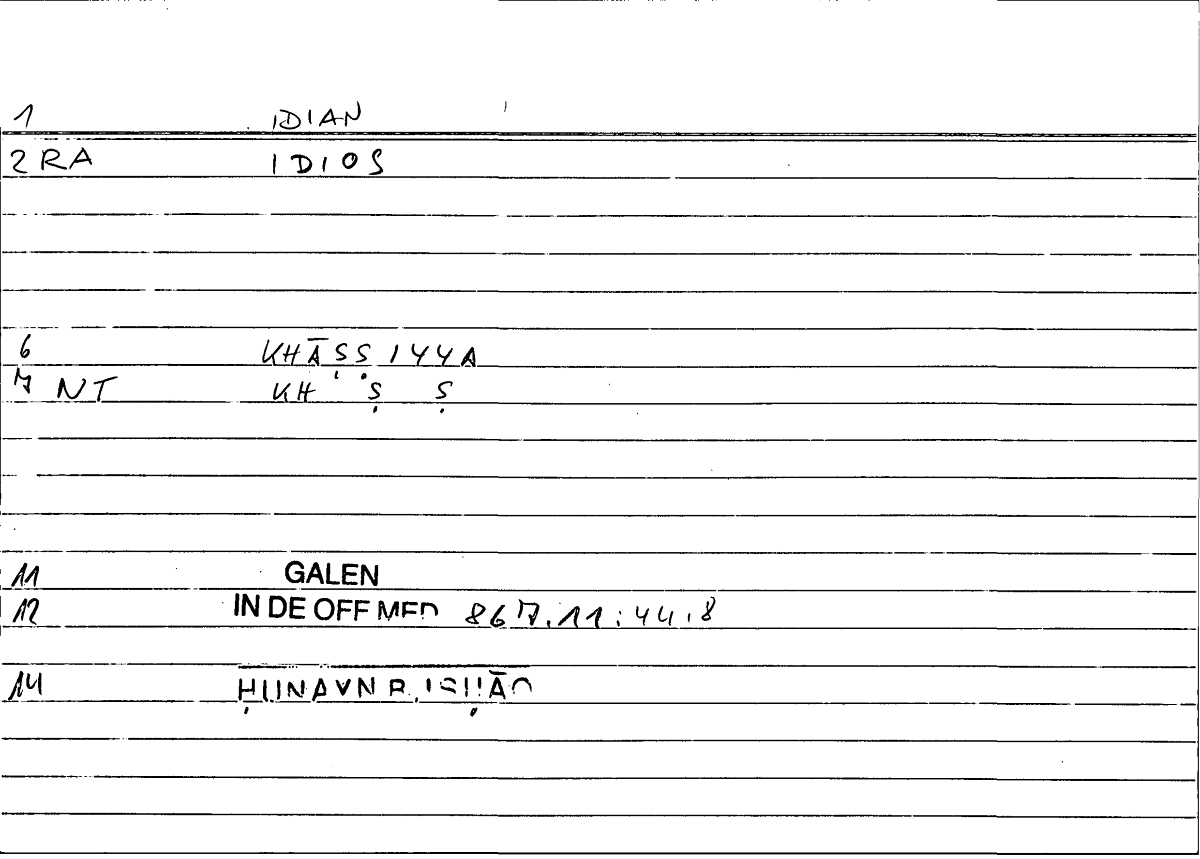 1 IDIAN
2 RA IDIOS
6 KHĀṢṢIYYA
7 NT KH ' ' Ṣ Ṣ
11 GALEN
12 IN DE OFF MED 867.11:44.8
14 ḤUNAYN B. ISḤĀQ